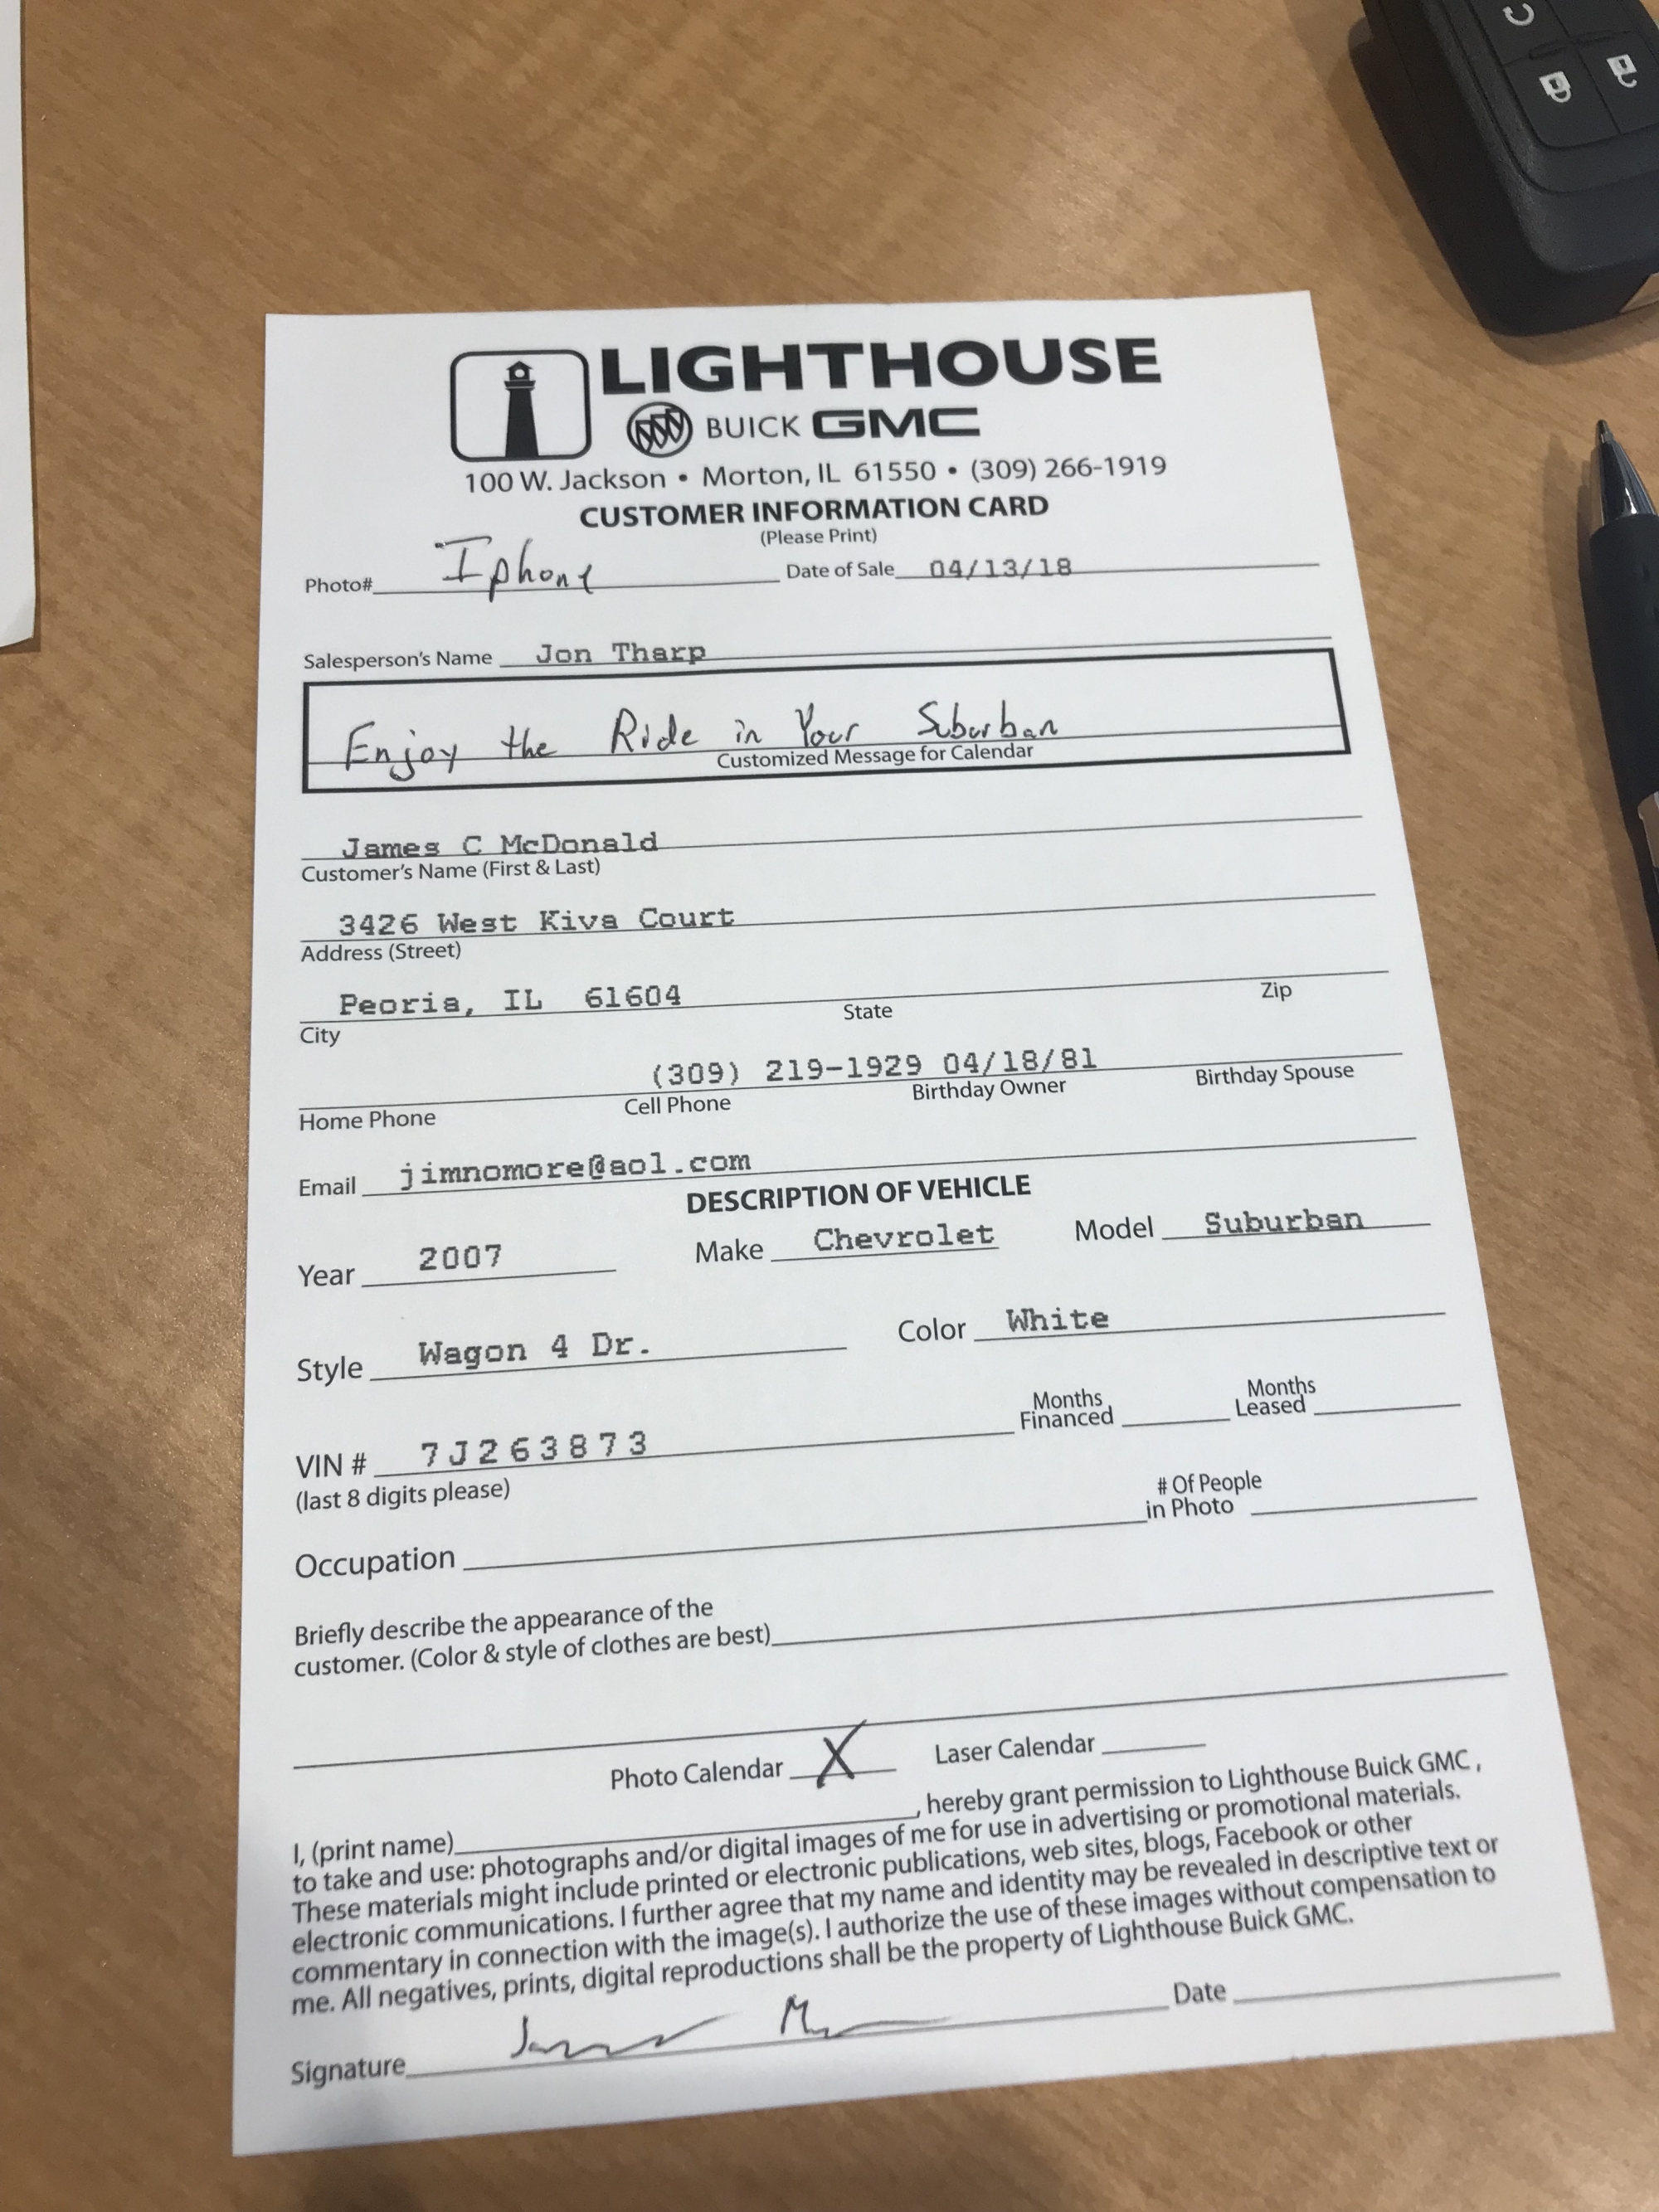 LIGHTHOUSE
BUICK GMC
100 W. Jackson • Morton, IL 61550 • (309) 266-1919
CUSTOMER INFORMATION CARD
(Please Print)
Photo# Iphone Date of Sale 04/13/18
Salesperson's Name Jon Tharp
Enjoy the Ride in Your Suburban
Customized Message for Calendar
James C McDonald
Customer's Name (First & Last)
3426 West Kiva Court
Address (Street)
Peoria, IL 61604
City State Zip
(309) 219-1929 04/18/81
Home Phone Cell Phone Birthday Owner Birthday Spouse
Email jimnomore@aol.com
DESCRIPTION OF VEHICLE
Year 2007 Make Chevrolet Model Suburban
Style Wagon 4 Dr. Color White
Months Financed Months Leased
VIN # 7J263873
(last 8 digits please)
# Of People
in Photo
Occupation
Briefly describe the appearance of the
customer. (Color & style of clothes are best)
Photo Calendar X Laser Calendar
I, (print name) , hereby grant permission to Lighthouse Buick GMC ,
to take and use: photographs and/or digital images of me for use in advertising or promotional materials.
These materials might include printed or electronic publications, web sites, blogs, Facebook or other
electronic communications. I further agree that my name and identity may be revealed in descriptive text or
commentary in connection with the image(s). I authorize the use of these images without compensation to
me. All negatives, prints, digital reproductions shall be the property of Lighthouse Buick GMC.
Signature Date